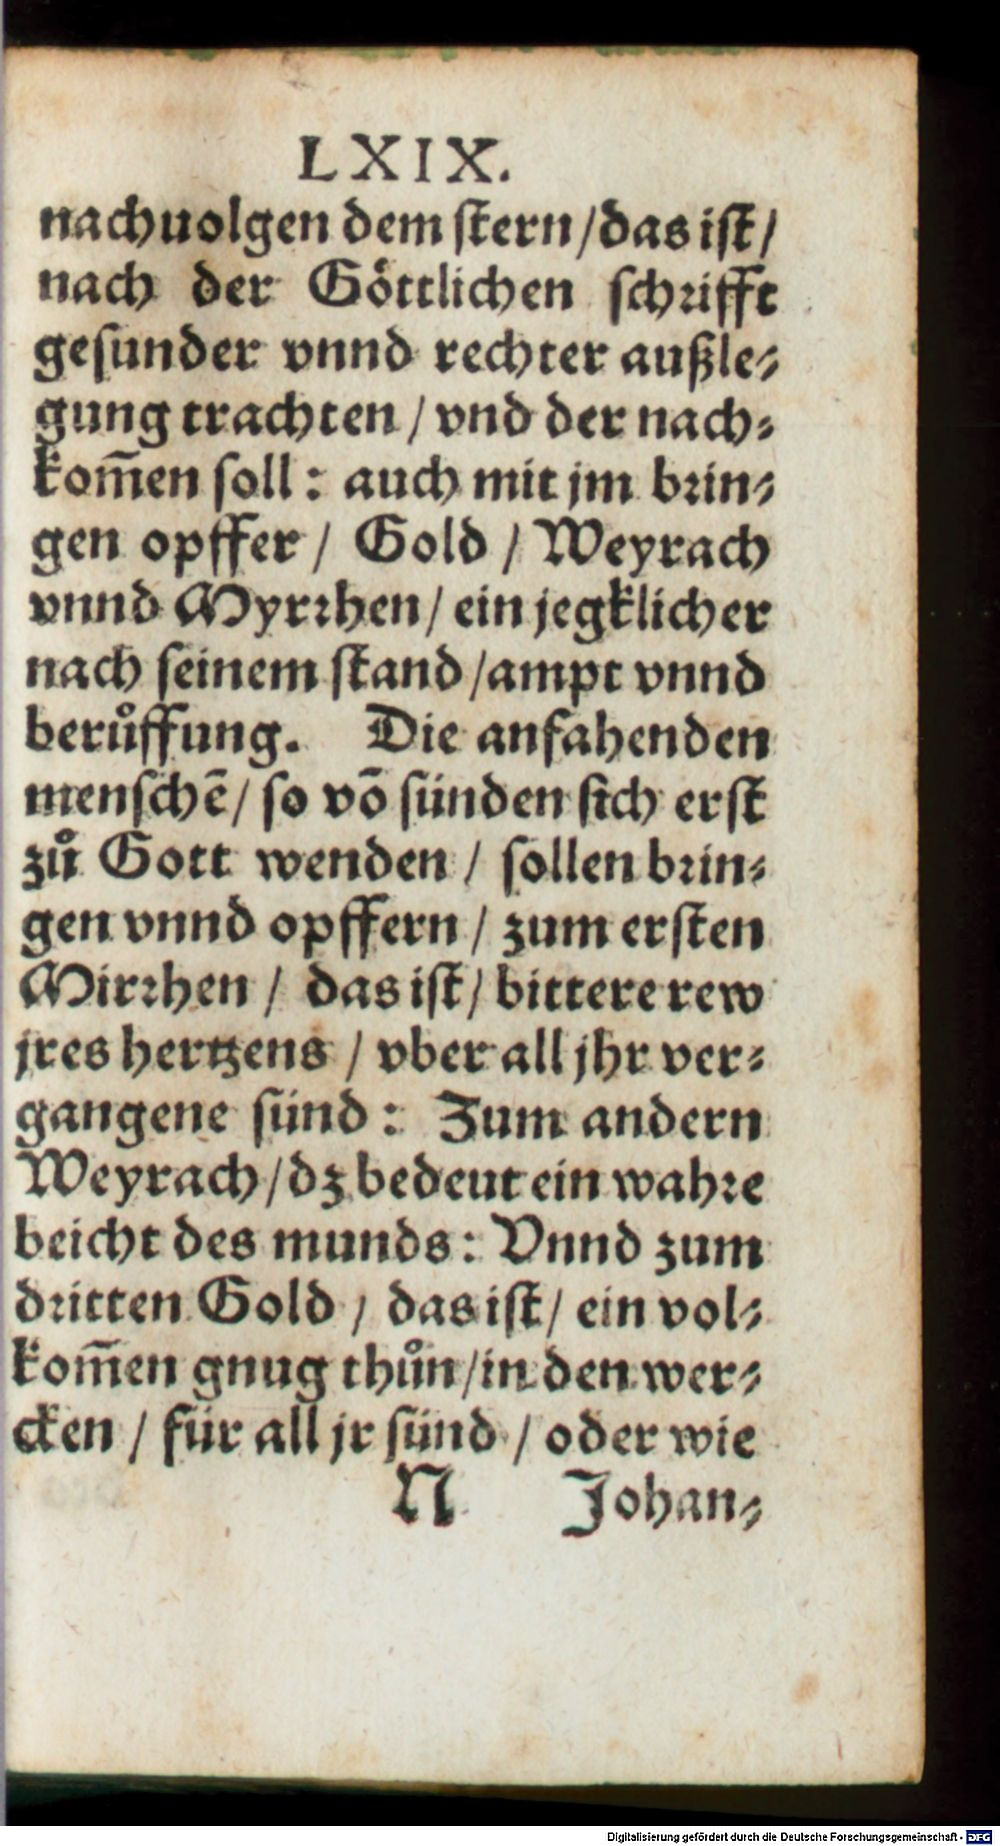 LXIX.
nachuolgen dem ſtern / das iſt /
nach der Goͤttlichen ſchrifft
geſunder vnnd rechter außle⸗
gung trachten / vnd der nach⸗
kom̃en ſoll: auch mit jm brin⸗
gen opffer / Gold / Weyrach
vnnd Myrrhen / ein jegklicher
nach ſeinem ſtand / ampt vnnd
beruͤffung. Die anfahenden
menſchē / ſo võ ſünden ſich erſt
zů Gott wenden / ſollen brin⸗
gen vnnd opffern / zum erſten
Mirrhen / das iſt / bittere rew
jres hertzens / vber all jhr ver⸗
gangene ſünd: Zum andern
Weyrach / dz bedeut ein wahre
beicht des munds: Vnnd zum
dritten Gold / das iſt / ein vol⸗
kom̃en gnug thůn / in den wer⸗
cken / für all jr ſünd / oder wie
N Johan⸗
Digitalisierung gefördert durch die Deutsche Forschungsgemeinschaft - DFG